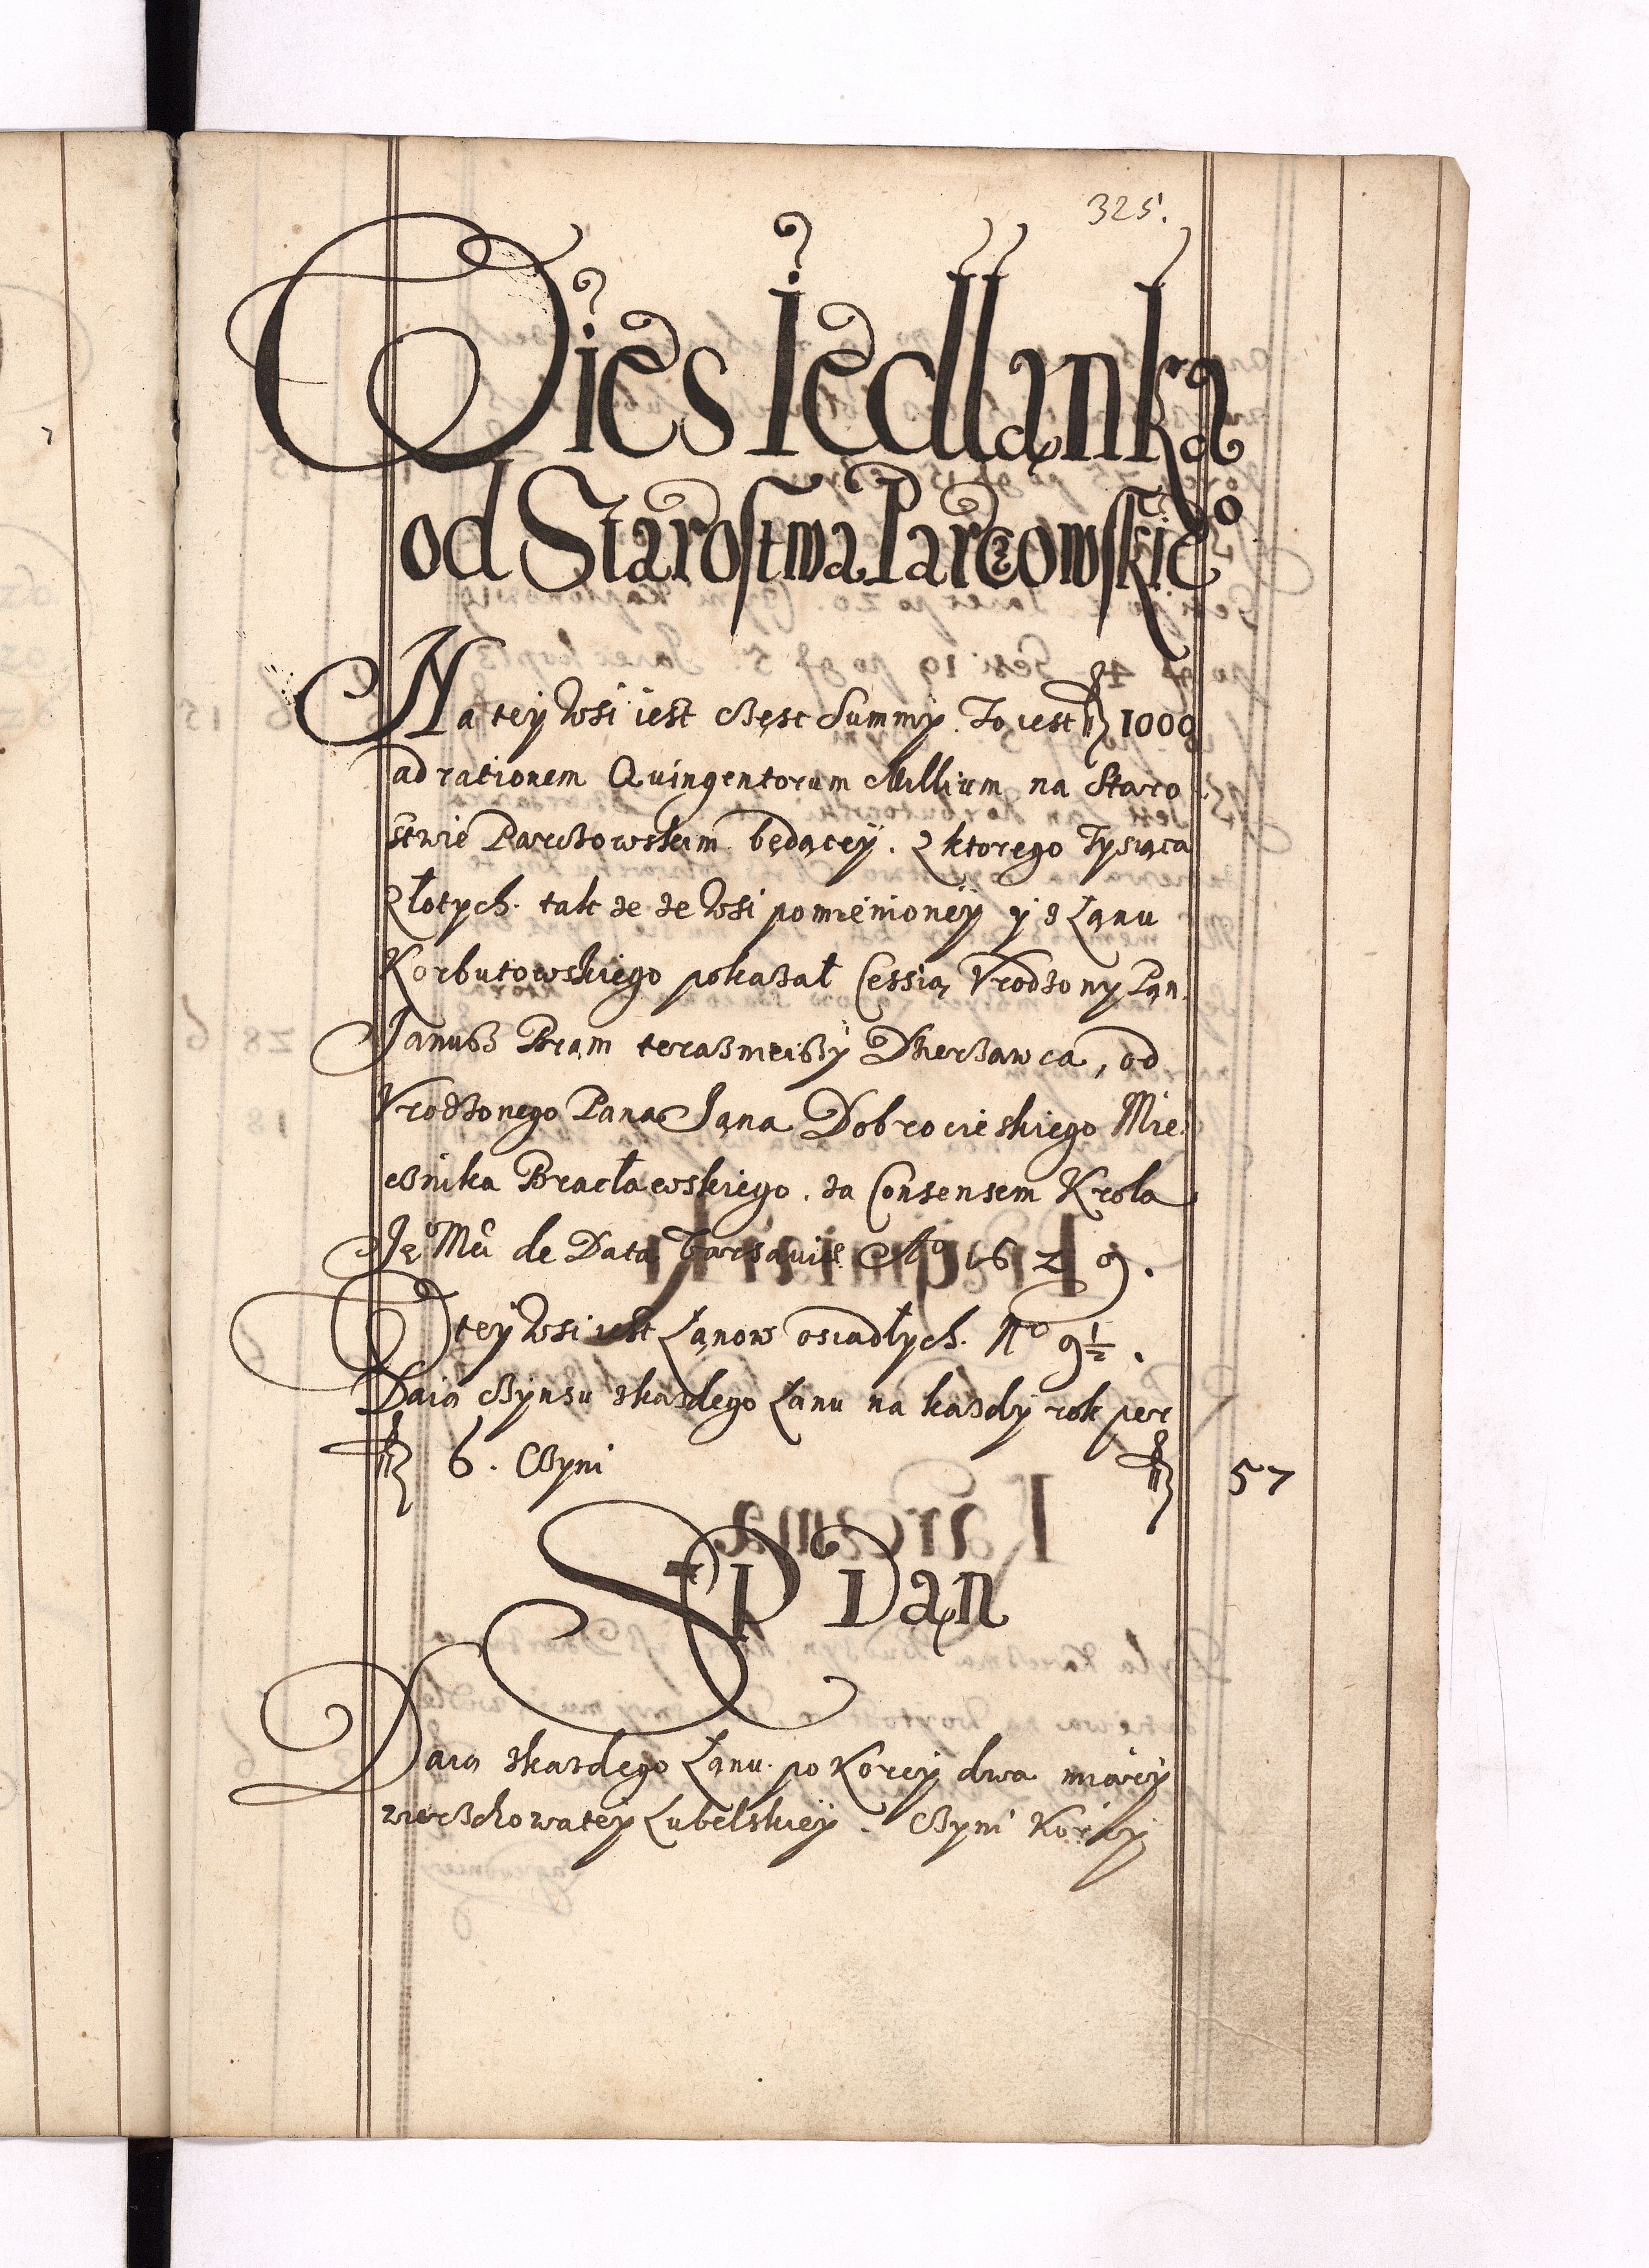 325.
Wies Iedlanka
od Starostwa Parczowskieo
Na tey Wsi iest część Summy. To iest fl 1000
ad rationem Quingentorum Millium na Staro
stwie Parczowskim będącey. z ktorego Tysiąca
złotych. tak ze ze Wsi pomienioney y z Łanu
Korbutowskiego pokazał Cessią Vrodzony Pan
Janusz Pram teraznieiszy Dzierzawca, od
Vrodzonego Pana Jana Dobrocieskiego Mie
cznika Bracławskiego. za Consensem Krola
Je͞o Mci de Data Varsaviæ A͞o 1629.
W tey Wsi iest Łanow osiadłych. No 9½.
Daią Czynsu zkazdego Łanu na kazdy rok per
fl 6. Czyni fl 57
Sep Dan
Daią zkazdego Łanu. po Korcy dwa miary
wierzchowatey Lubelskiey. Czyni Korcy